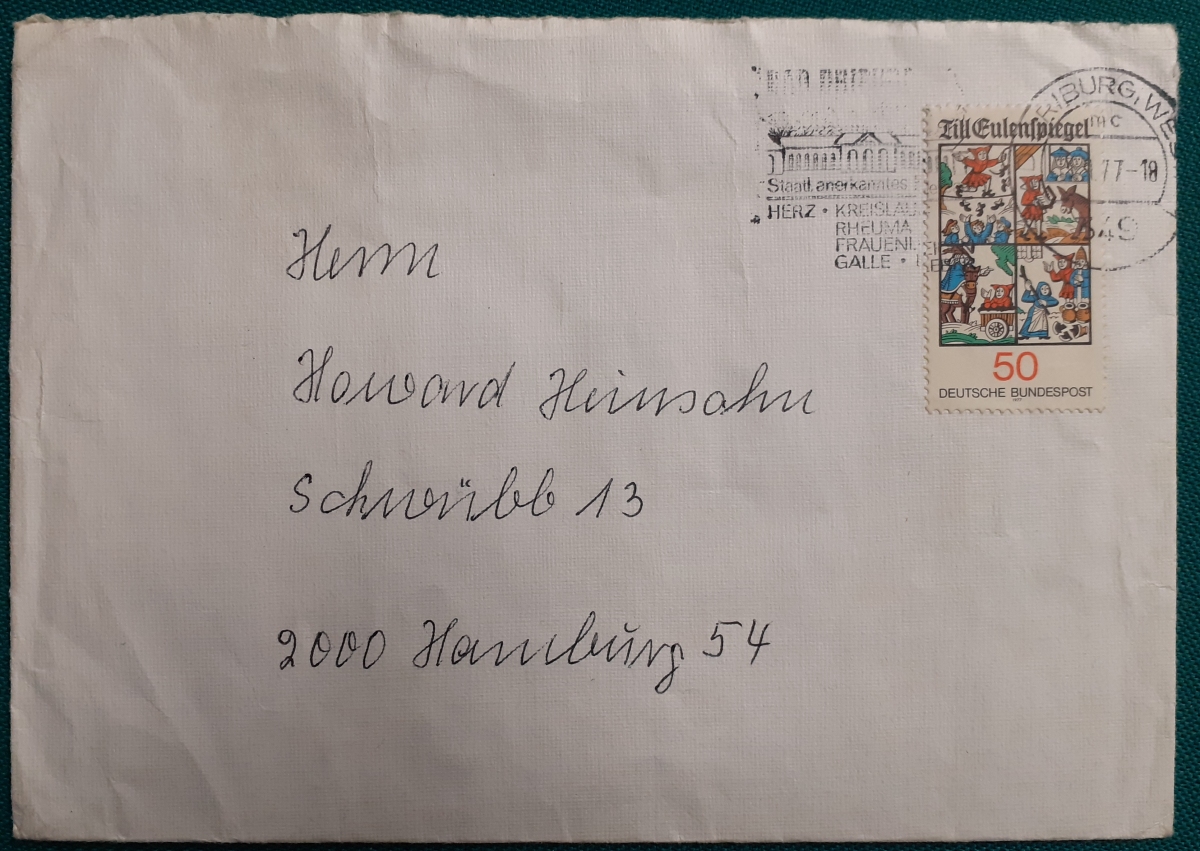 BAD DRIBURG
Staatl. anerkanntes
HERZ · KREISLAU
RHEUMA
FRAUENL EI
GALLE ·
RIBURG, WES
mc
77-18
349
Till Eulenspiegel
50
DEUTSCHE BUNDESPOST
1977
Herrn
Howard Heinsohn
Schwübb 13
2000 Hamburg 54